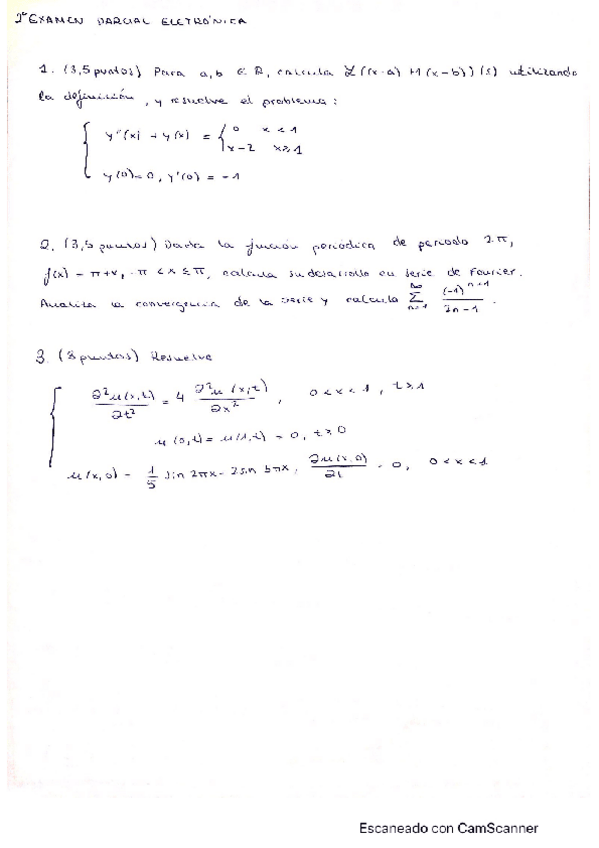 2º EXAMEN PARCIAL ELETRÓNICA
1. (3,5 puntos) Para a,b ∈ ℝ, calcula ℒ((x-a) H(x-b))(s) utilizando
la definición, y resuelve el problema:
y''(x) + y(x) = { 0 x < 1
x-2 x≥1
y(0)=0, y'(0) = -1
2. (3,5 puntos) Dada la función periódica de periodo 2π,
f(x) = π+x, -π < x ≤ π, calcula su desarrollo en serie de Fourier.
Analiza la convergencia de la serie y calcula ∑_{n=1}^{∞} (-1)^{n+1}/(2n-1).
3. (3 puntos) Resuelve
∂²u(x,t)/∂t² = 4 ∂²u(x,t)/∂x², 0<x<1, t≥1
u(0,t) = u(1,t) = 0, t≥0
u(x,0) = 1/5 sin 2πx - 2sin 5πx, ∂u(x,0)/∂t = 0, 0<x<1
Escaneado con CamScanner